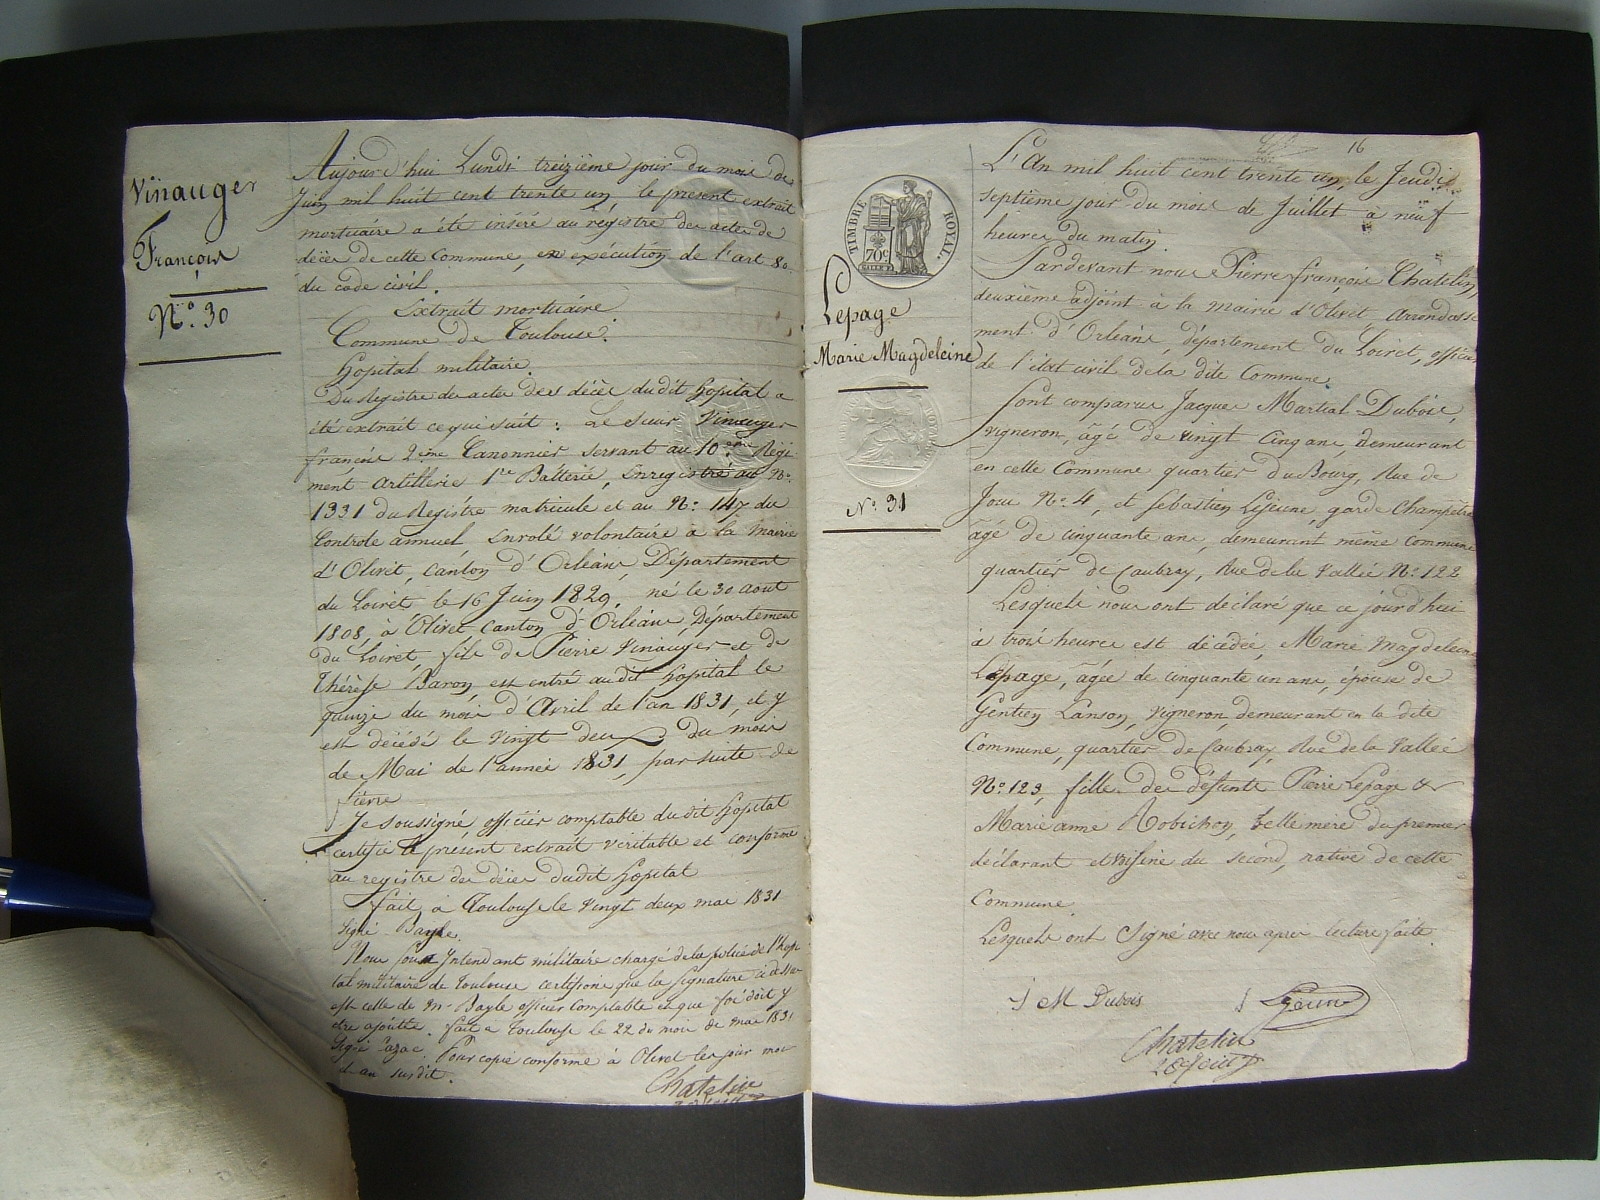 Vinauger
François
N.º 30
Aujourd'hui Lundi treizième jour du mois de
Juin mil huit cent trente un, le présent extrait
mortuaire a été inséré au régistre des actes de
décès de cette Commune, en exécution de l'art 80.
du code civil.
Extrait mortuaire.
Commune de Toulouse.
hopital militaire.
Du Registre des actes des décès dudit hopital a
été extrait ce qui suit: Le Sieur Vinauger
françois 2.ème Canonnier servant au 10.ème Régi
ment artillerie 1.re Batterie, Enregistré au N.º
1331 du Régistre matricule et au N.º 147 du
Controle annuel Enrolé volontaire à la Mairie
d'Olivet, canton d'Orléans, Département
du Loiret le 16 Juin 1829, né le 30 aout
1808, à Olivet, canton d'Orléans, Département
du Loiret, fils de Pierre Vinauger et de
Thérèse Baron, est entré audit hopital le
quinze du mois d'Avril de l'an 1831, et y
est décédé le Vingt deux du mois
de Mai de l'année 1831, par suite de
fièvre
Je soussigné, officier comptable dudit hopital
certifie le présent extrait véritable et conforme
au registre des décès dudit hopital
fait à Toulouse le vingt deux mai 1831
Signé Bayle.
Nous sous Intendant militaire chargé de la police de l'hopi
tal militaire de Toulouse certifions que la signature ci dessus
est celle de M. Bayle officier comptable et que foi doit y
etre ajoutée. fait a Toulouse le 22 du mois de mai 1831
Signé Cazac. Pour copie conforme à Olivet les jour mois
et an susdit.
Chatelin
16
TIMBRE ROYAL.
70c
Lepage
Marie Magdeleine
N.º 31
L'An mil huit cent trente un, le Jeudi
septième jour du mois de Juillet à neuf
heures du matin.
Pardevant nous Pierre françois Chatelin,
deuxième adjoint à la mairie d'Olivet, arrondisse
ment d'Orléans, département du Loiret, officier
de l'état civil de la dite Commune.
Sont comparus Jacques Martial Dubois,
vigneron, âgé de vingt cinq ans, demeurant
en cette Commune quartier du Bourg, Rue de
N.º 4, et Sébastien Lejeune, garde Champêtre
âgé de cinquante ans, demeurant même commune
quartier de Caubray, Rue de la Vallée N.º 122
Lesquels nous ont déclaré que ce jourd'hui
à trois heures est décédée, Marie Magdeleine
Lepage, âgée de cinquante un ans, épouse de
Gentien Lanson, vigneron, demeurant en la dite
Commune, quartier de Caubray, Rue de la Vallée
N.º 123, fille de défunts Pierre Lepage &
Marie anne Robichon, belle mère du premier
déclarant et voisine du second, native de cette
Commune.
Lesquels ont Signé avec nous après lecture faite.
J M Dubois
S Lejeune
Chatelin